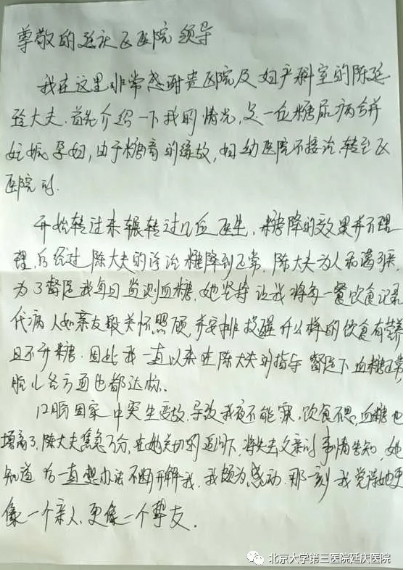 尊敬的延庆区医院领导
我在这里非常感谢贵医院及妇产科室的陈延
大夫.首先介绍一下我的情况,是一位糖尿病合并
妊娠孕妇,由于糖高的缘故,妇幼医院不接诊.转至区
医院的.
开始转过来辗转过几位医生,糖降的效果并不理
理,后经过陈大夫的诊治糖降到正常,陈大夫为人和蔼
为了督促我每日监测血糖,她坚持让我将每一餐饮食记录
代病人如亲友般关怀照顾,并安排提醒什么样的饮食有营养
且不升糖.因此我一直以来在陈大夫的指导督促下血糖正常
胎儿各方面也都达标.
12月份因家中突生变故,导致我夜不能寐,饮食不思,血糖也
增高了,陈大夫焦急万分,在她关切的追问下,将失去父亲的事情告知,她
知道后一直想办法不断开解我,我颇为感动,那一刻我觉得她更
像一个亲人,更像一个挚友.
北京大学第三医院延庆医院